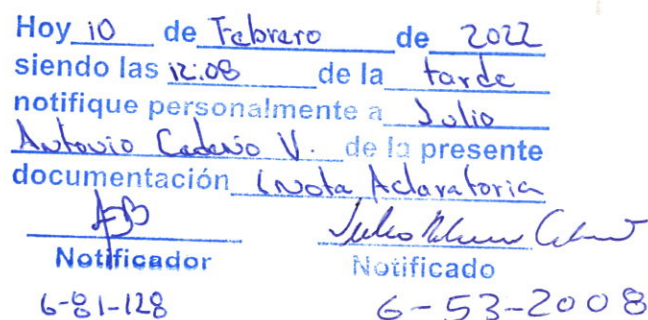 Hoy 10 de Febrero de 2022
siendo las 12:08 de la tarde
notifique personalmente a Julio
Antonio Cedeño V. de la presente
documentación (Nota Aclaratoria
Julio
Notificador Notificado
6-81-128 6-53-2008